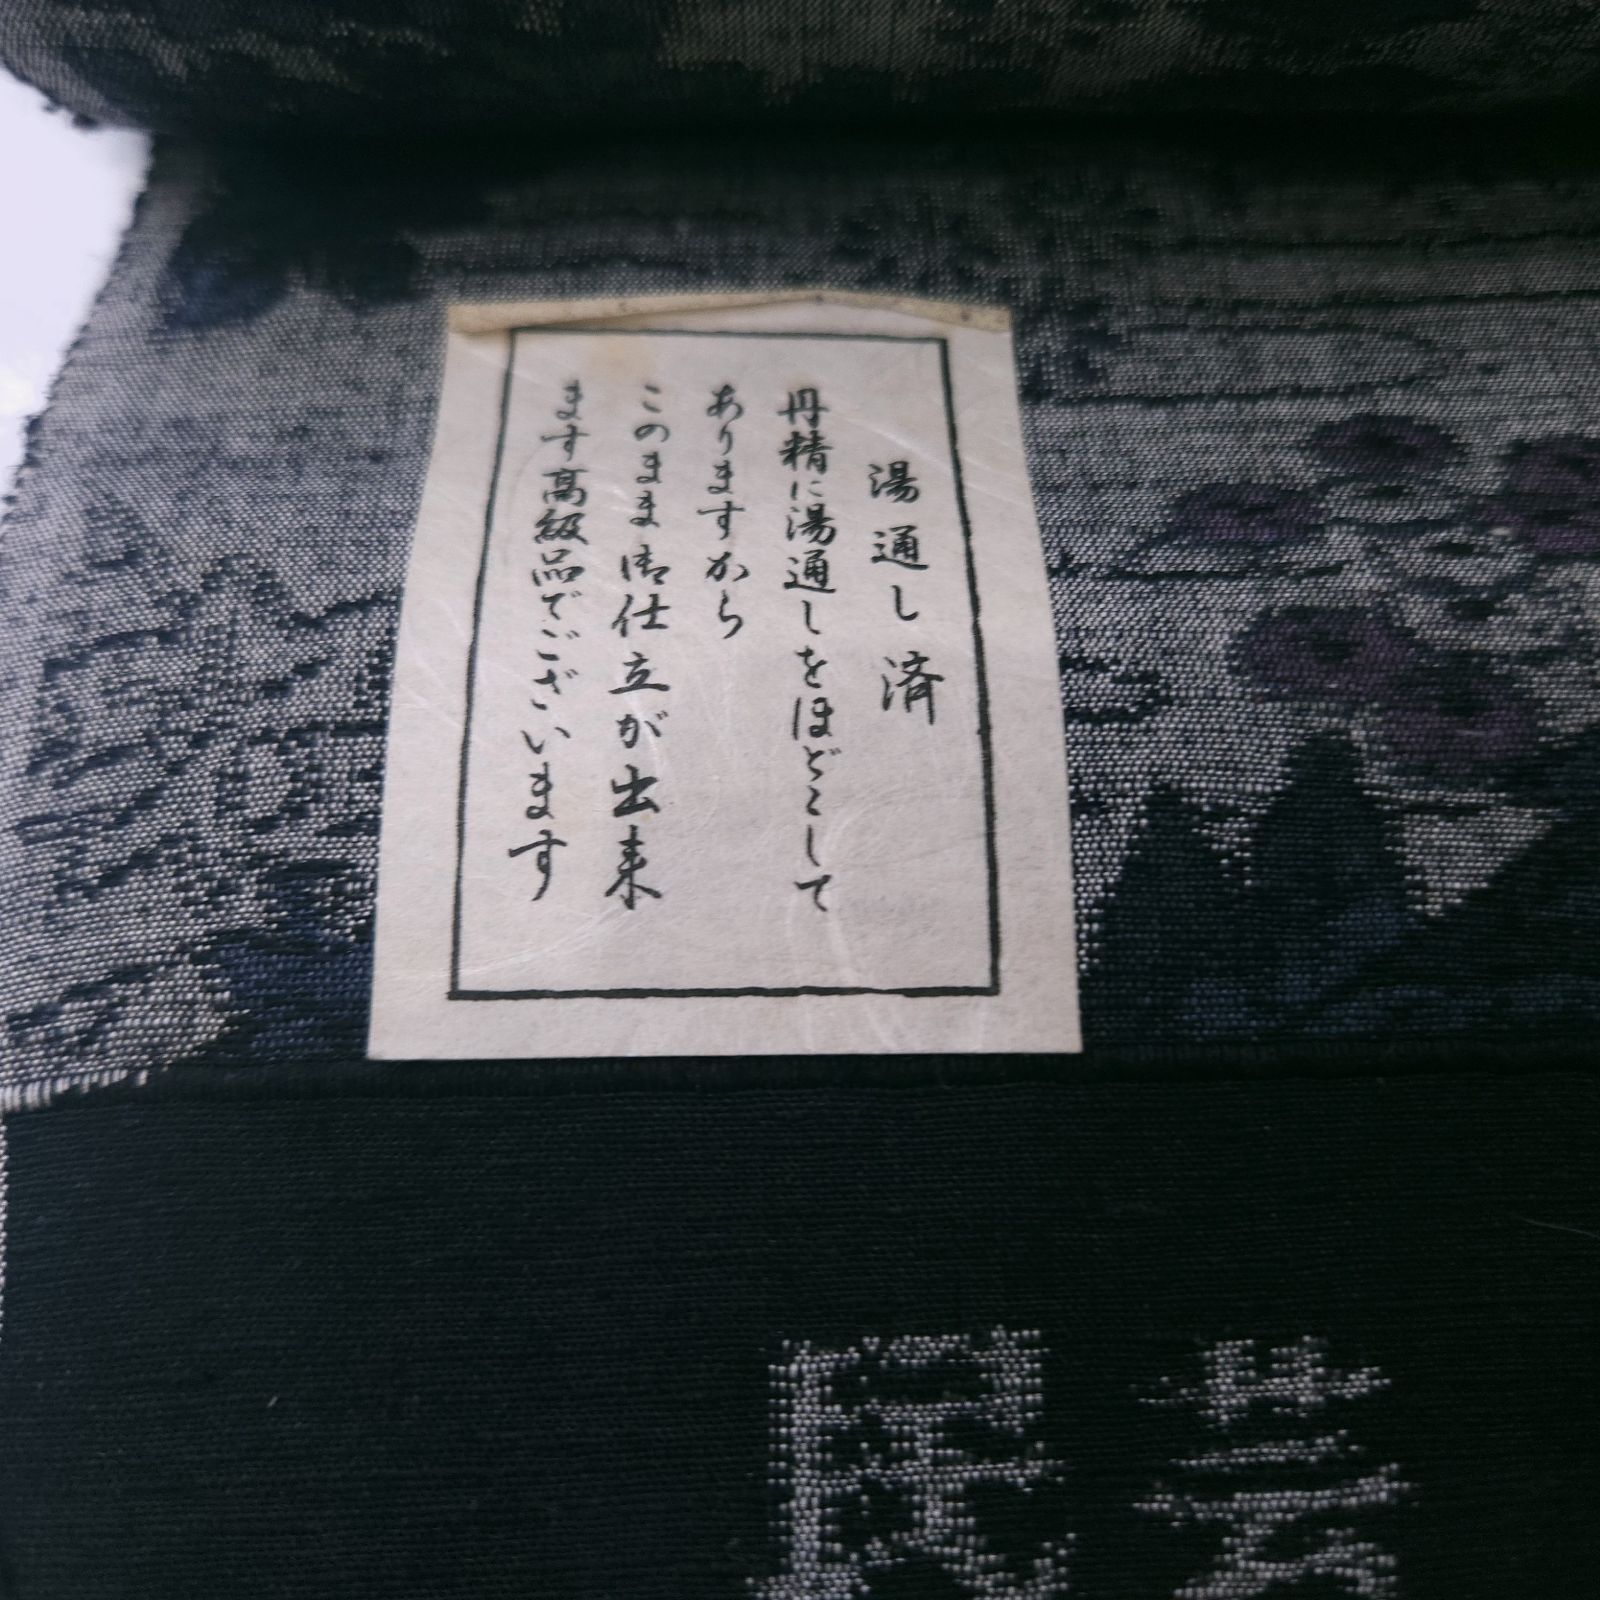 湯通し済
丹精に湯通しをほどこして
ありますから
このまま御仕立が出来
ます高級品でございます
民芸